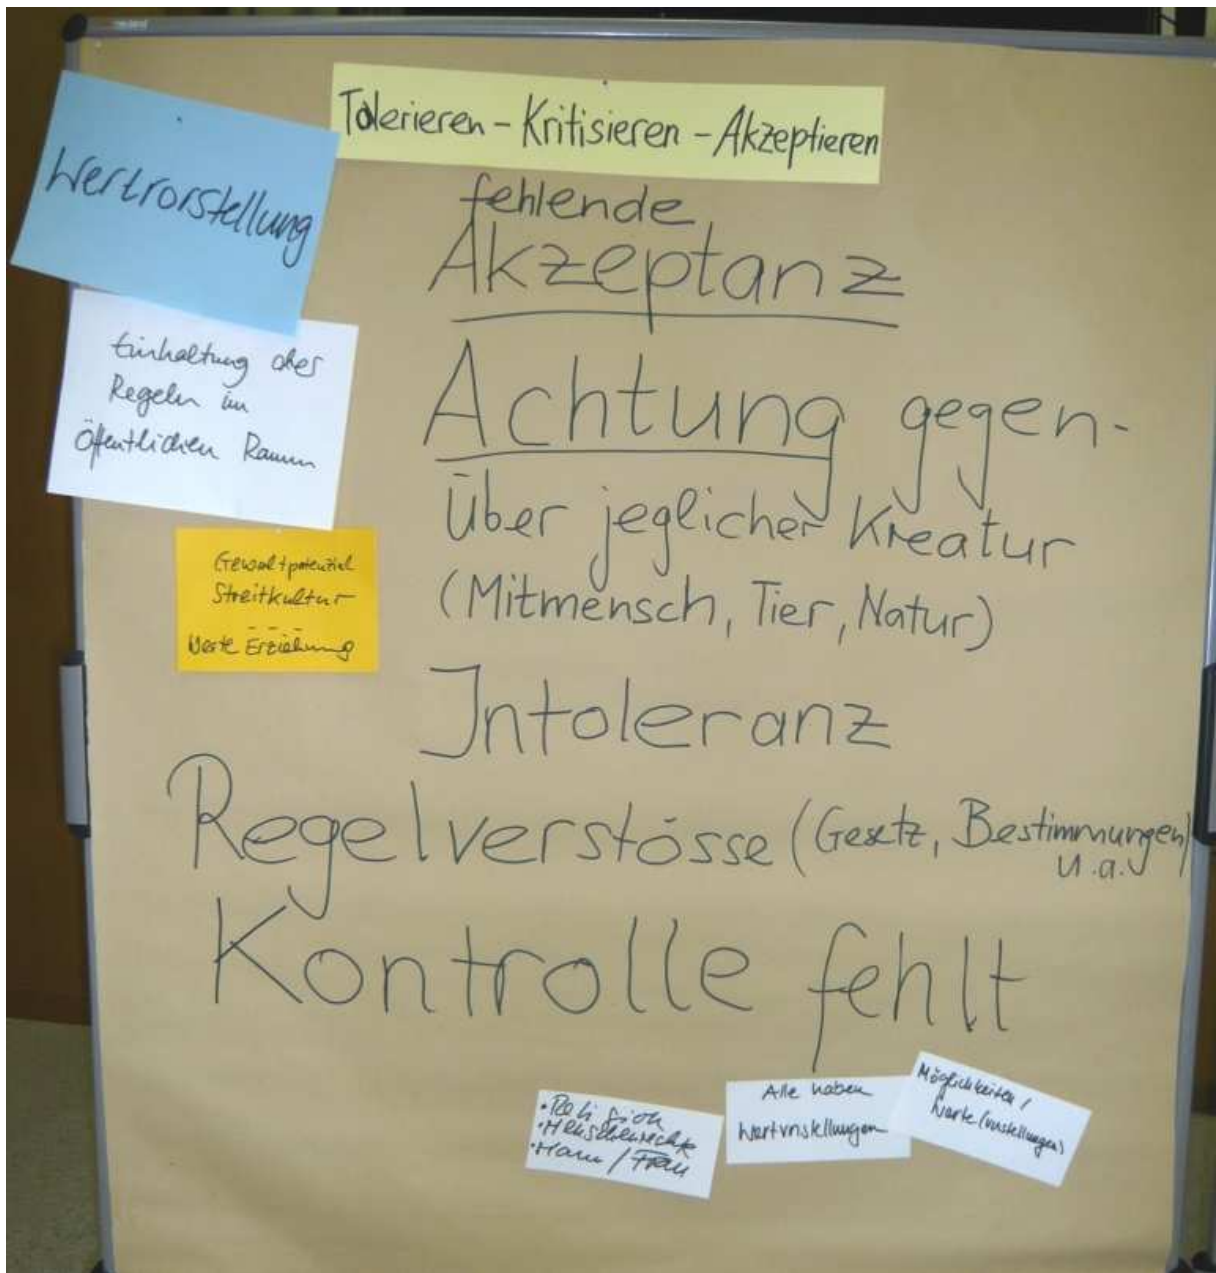 Tolerieren - Kritisieren - Akzeptieren
Wertvorstellung
fehlende
Akzeptanz
Einhaltung der
Regeln im
öffentlichen Raum
Achtung gegen-
über jeglicher Kreatur
(Mitmensch, Tier, Natur)
Gewaltpotenzial
Streitkultur
Werte Erziehung
Intoleranz
Regelverstösse (Gesetz, Bestimmungen)
u.a.
Kontrolle fehlt
• Religion
• Menschenrechte
• Mann / Frau
Alle haben
Wertvorstellungen
Möglichkeiten /
Werte (vorstellungen)